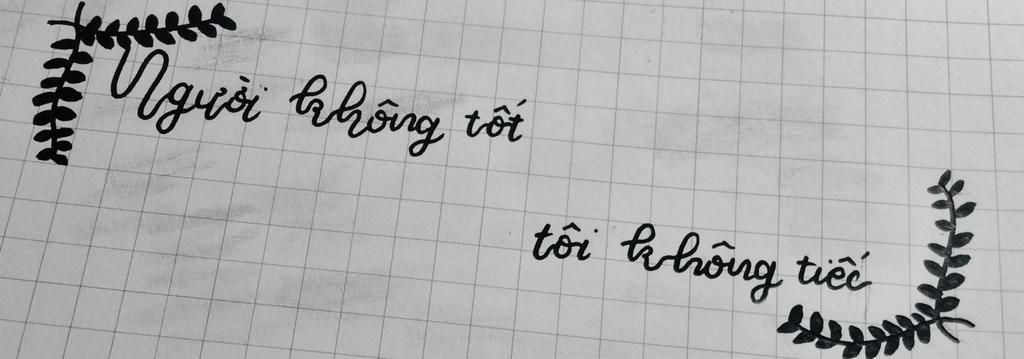 Người không tốt
tôi không tiếc